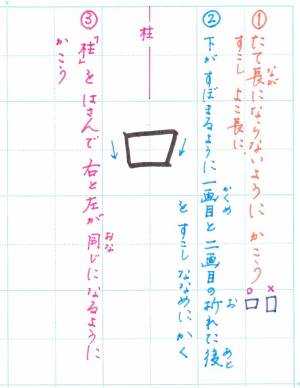 ① たて長にならないように かこう
なが
すこし よこ長に
× ○
柱
② 下がすぼまるように 一画目と二画目の折れた後
かくめ お あと
を すこし ななめに かく
③「柱」を はさんで 右と左が同じになるように
おな
かこう